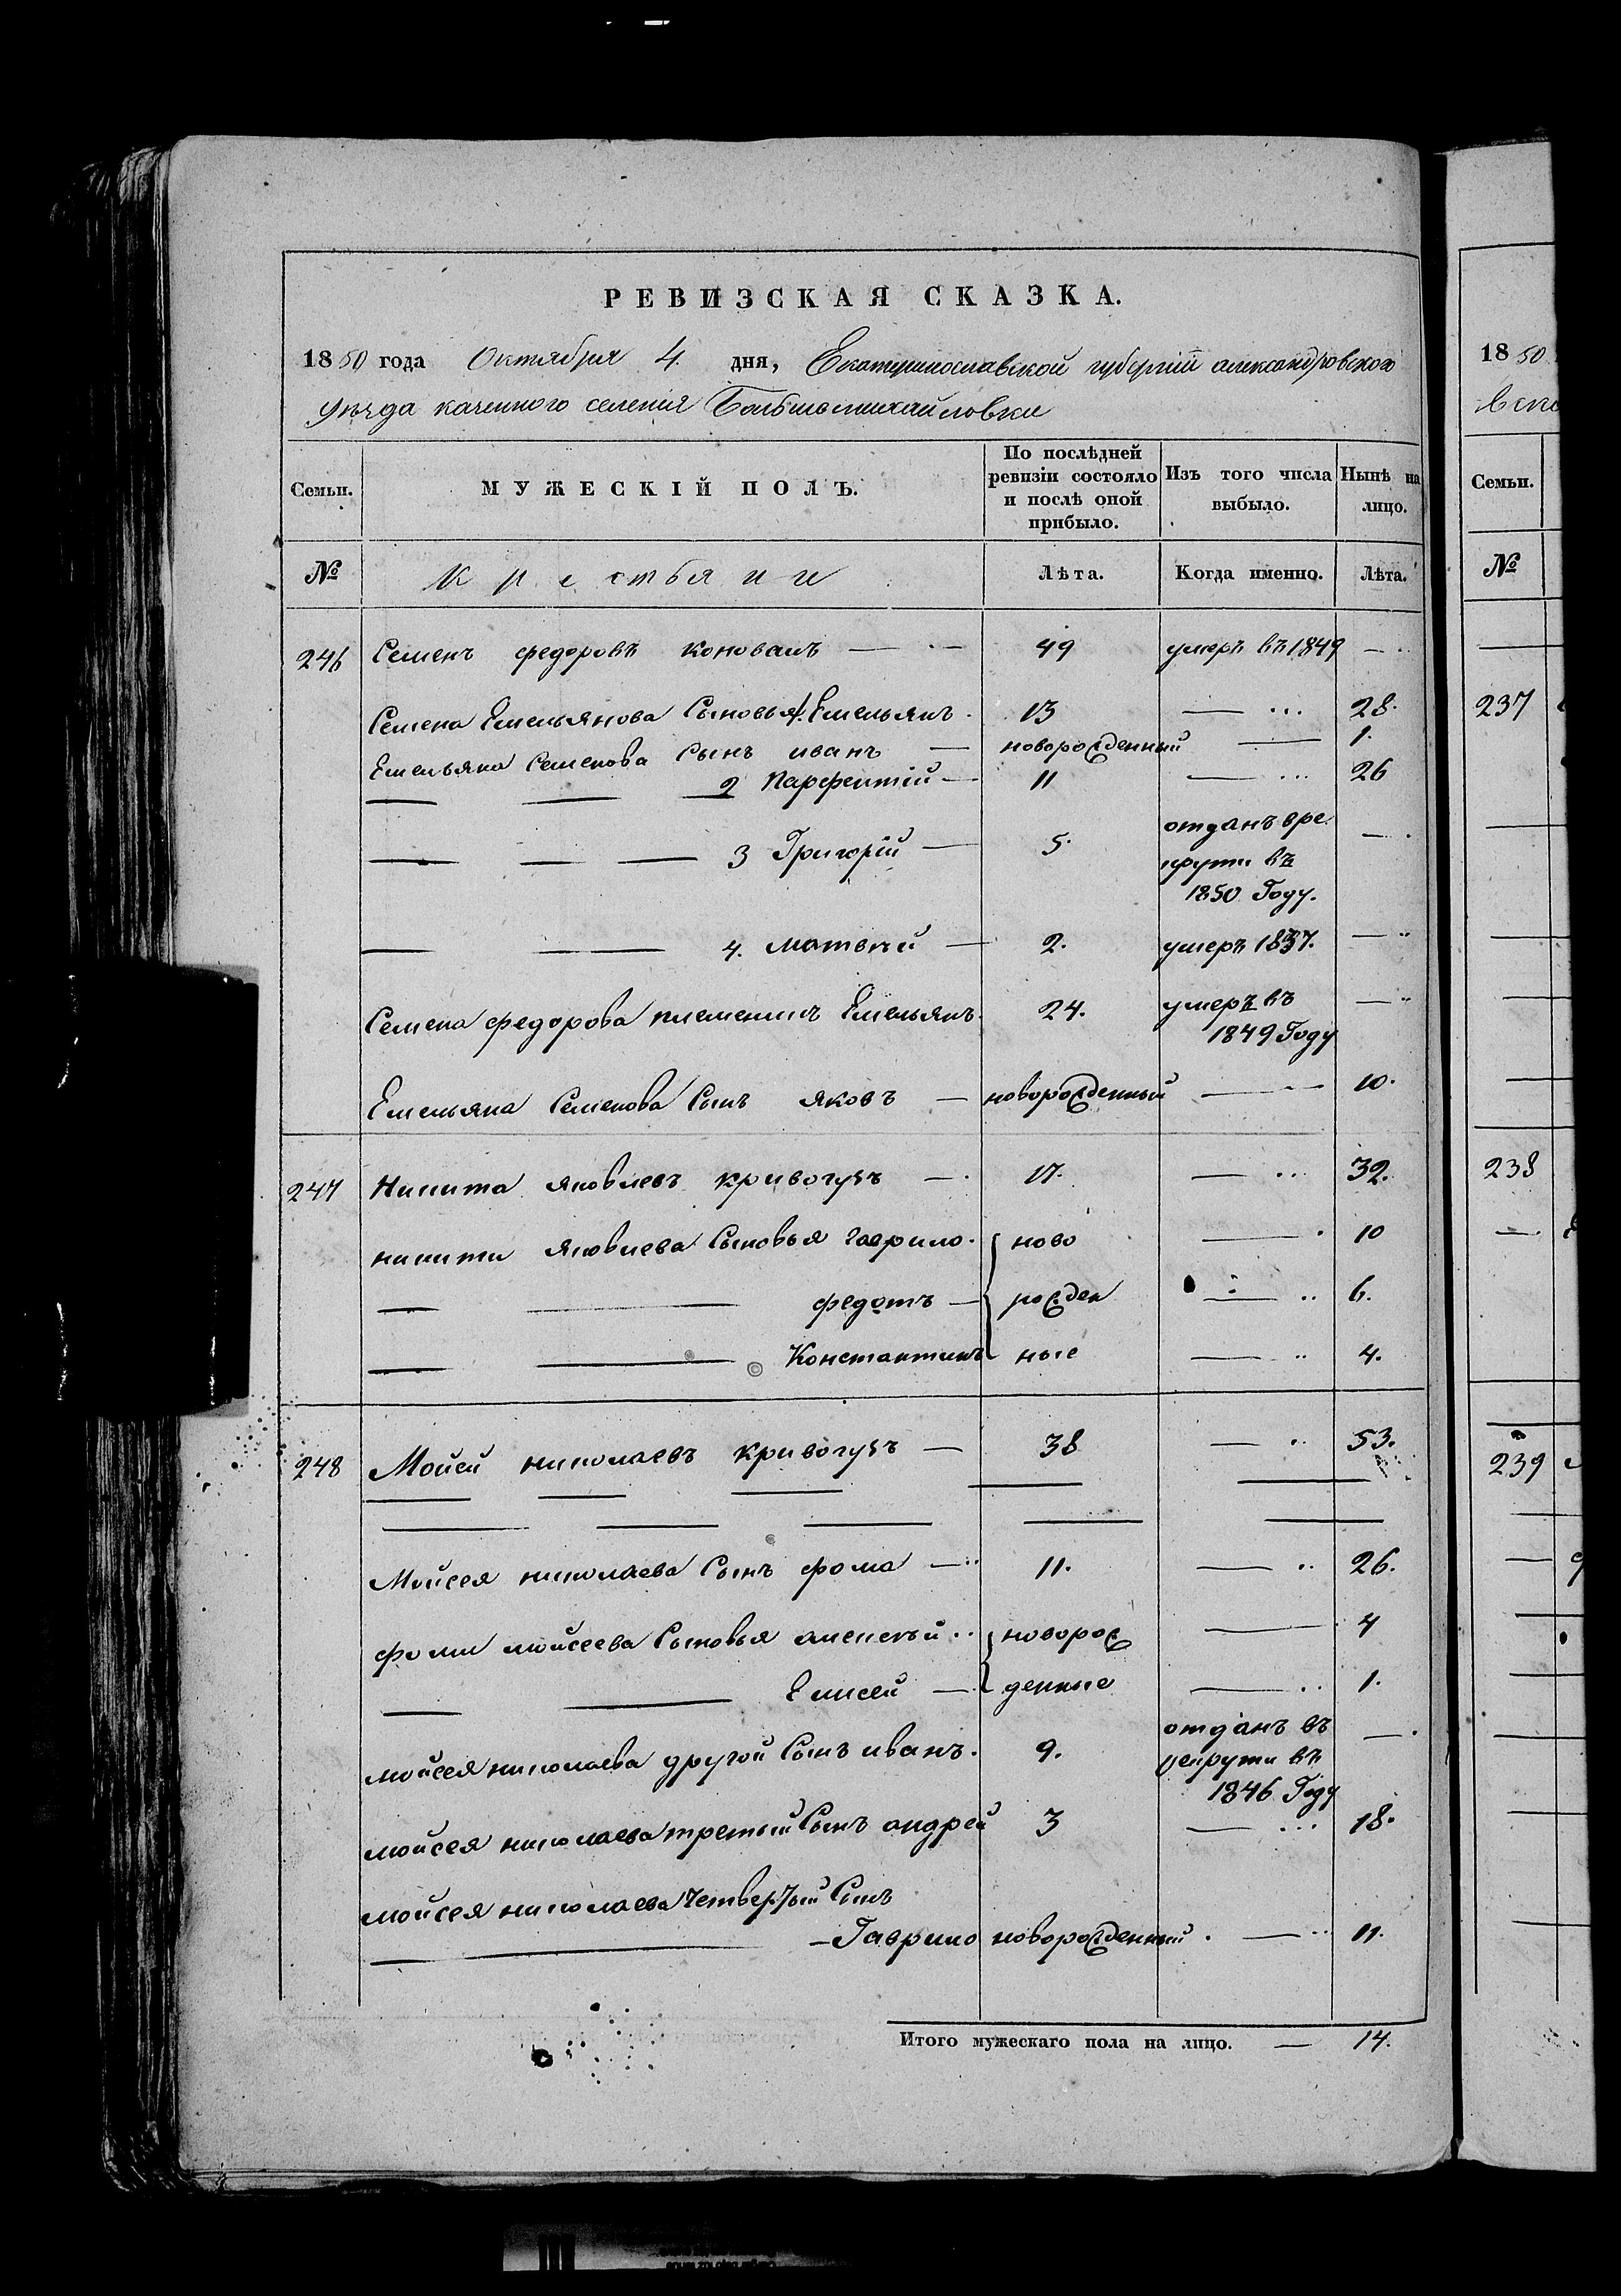 РЕВИЗСКАЯ СКАЗКА.
1850 года Октября 4. дня, Екатеринославской губернiи александровского
уѣзда казенного селенiя Большемихайловки
Семьи.
МУЖЕСКIЙ ПОЛЪ.
По послѣдней ревизiи состояло и послѣ оной прибыло.
Изъ того числа выбыло.
Нынѣ на лицо.
№ крестьяне Лѣта. Когда именно. Лѣта.
246 Семенъ федоровъ коновалъ — 49 умеръ въ 1849 —
Семена Емельянова Сыновья 1. Емельянъ. 13 — 28.
Емельяна Семенова Сынъ иванъ — новорожденный — 1.
— — — 2 Парфентiй — 11 — 26
— — — 3 Григорiй — 5. отданъ вре
крути въ
1850 Году. —
— — 4. матвѣй — 2. умеръ 1837. —
Семена федорова племенникъ Емельянъ. 24. умеръ въ
1849 Году —
Емельяна Семенова Сынъ яковъ — новорожденный — 10.
247 Никита яковлевъ кривогузъ — 17. — 32.
никиты яковлева Сыновья гаврило. ново — 10
— — федотъ — рожден — 6.
— — Константинъ ные — 4.
248 Мойсей николаевъ кривогузъ — 38 — 53.
Мойсея николаева Сынъ фома — 11. — 26.
фомы мойсеева Сыновья алексѣй новорож — 4
— — Елисей — денные — 1.
мойсея николаева другой Сынъ иванъ. 9. отданъ въ
рекрути въ
1846 Году —
мойсея николаева третьий Сынъ андрей 3 — 18.
мойсея николаева четвертый Сынъ
— Гаврило новорожденный. — 11.
Итого мужескаго пола на лицо. — 14.
1850
Семьи.
№
237
238
239